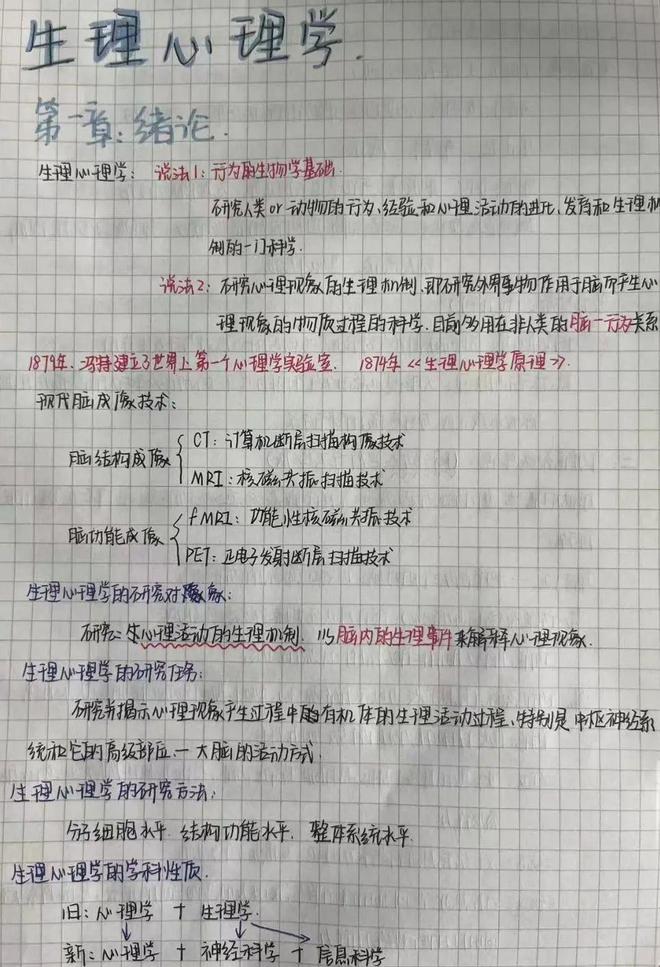 生理心理学.
第一章:绪论.
生理心理学: 说法1:行为的生物学基础.
研究人类or动物的行为、经验和心理活动的进化、发育和生理机
制的一门科学.
说法2:研究心理现象的生理机制.即研究外界事物作用于脑而产生心
理现象的物质过程的科学.目前多用在非人类的脑—行为关系
1879年.冯特建立了世界上第一个心理学实验室. 1874年<<生理心理学原理>>.
现代脑成像技术:
脑结构成像 CT:计算机断层扫描构像技术
MRI:核磁共振扫描技术
脑功能成像 fMRI:功能性核磁共振技术
PET:正电子发射断层扫描技术
生理心理学的研究对象:
研究心理活动的生理机制.以脑内的生理事件来解释心理现象.
生理心理学的研究任务:
研究并揭示心理现象产生过程中的有机体的生理活动过程,特别是中枢神经系
统和它的高级部位—大脑的活动方式.
生理心理学的研究方法:
分子细胞水平.结构功能水平.整体系统水平.
生理心理学的学科性质.
旧:心理学 + 生理学.
新:心理学 + 神经科学 + 信息科学